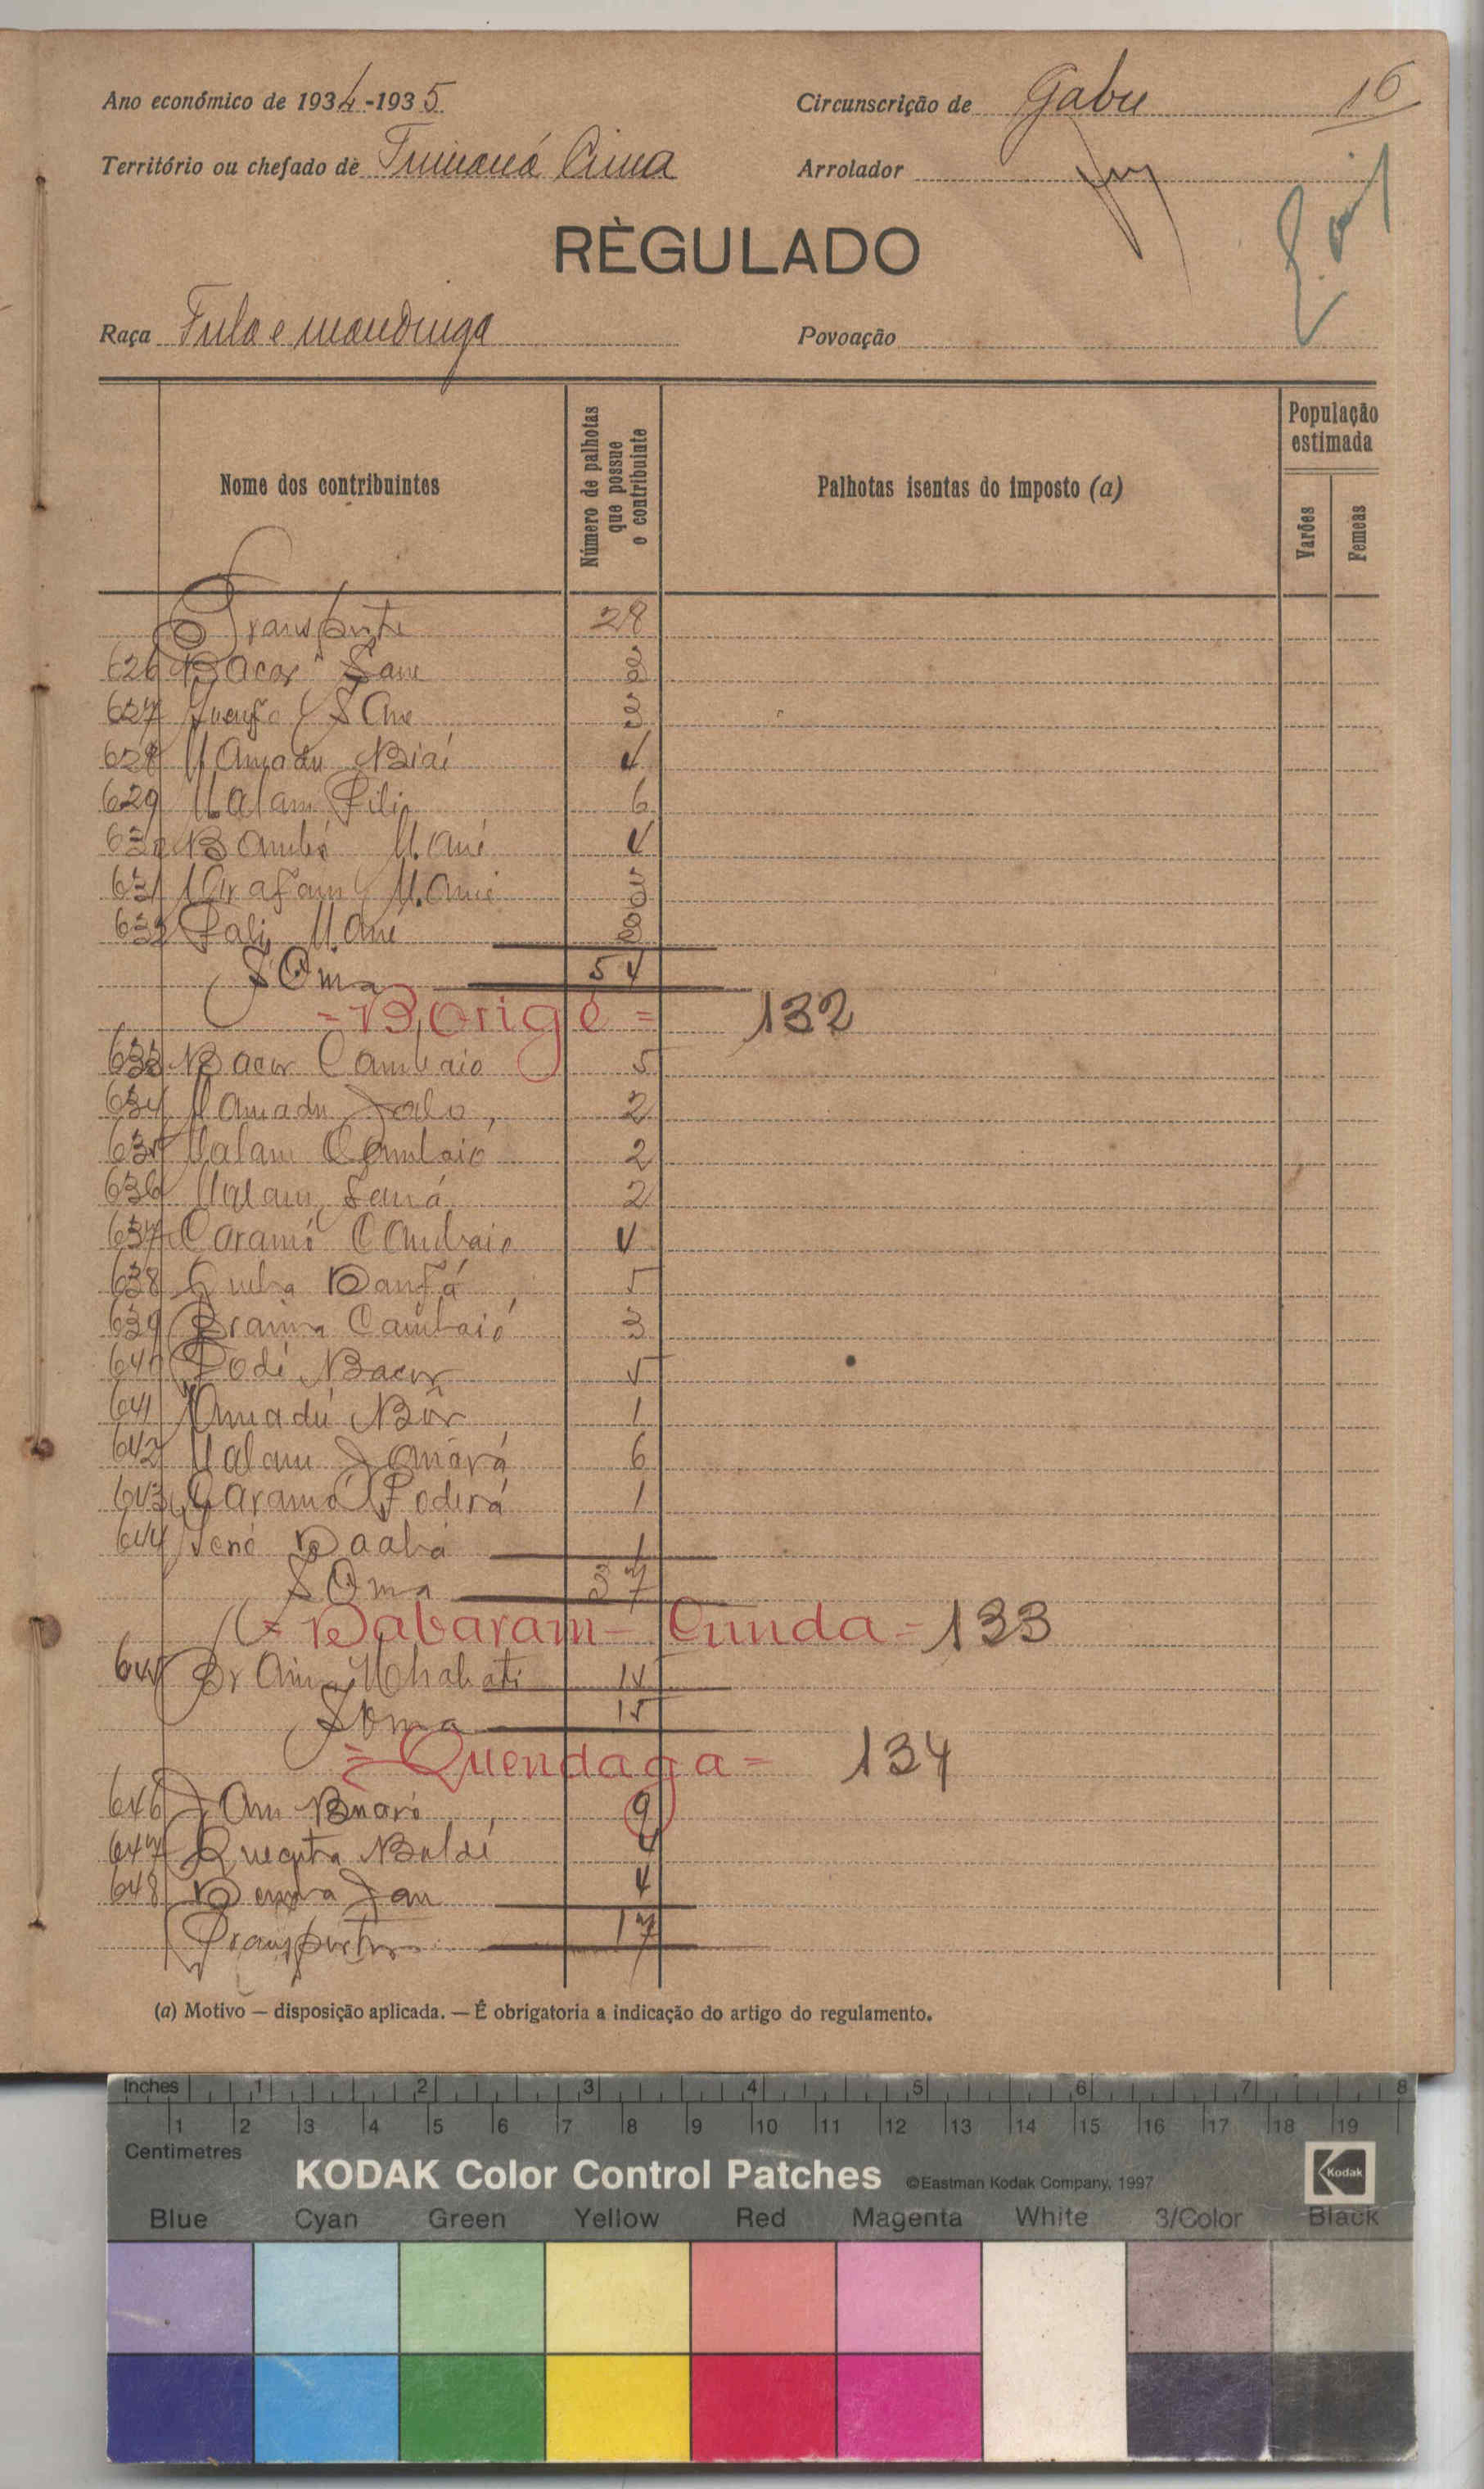 Ano económico de 1934-1935
Circunscrição de Gabu 16
Território ou chefado de Tumaná Cima
Arrolador
RÈGULADO
Raça Fula e mandinga
Povoação
Nome dos contribuintes
Número de palhotas que possue o contribuinte
Palhotas isentas do imposto (a)
População estimada
Varões
Femeas
Transporte 28
626 Bacar Sane
627 Sane
628 Mamadu Biai 4
629 Malam Fili 6
630 Bambó Mané 4
631 Arafam Mané
632 Fali Mané
Soma 54
= Borigé = 132
633 Bacar Cambaio 5
634 Mamadu Jalo 2
635 Malam Cambaio 2
636 Malam Saná 2
637 Caramó Cambaio 4
638 Danfá 5
639 Braima Cambaió 3
640 Fodé Bacar 5
641 Amadú Bôr 1
642 Malam 6
643 Caramó 1
644 Dabá 1
Soma 37
= Dabaram - Cunda - 133
645 Braima
Soma 15
= Quendaga = 134
646 Jau Buaró 9
647 Quecuta Baldé 4
648 Demba Jau 4
Transporte 17
(a) Motivo — disposição aplicada. — É obrigatoria a indicação do artigo do regulamento.
Inches 1 2 3 4 5 6 7 8
Centimetres 1 2 3 4 5 6 7 8 9 10 11 12 13 14 15 16 17 18 19
KODAK Color Control Patches ©Eastman Kodak Company, 1997 Kodak
Blue Cyan Green Yellow Red Magenta White 3/Color Black